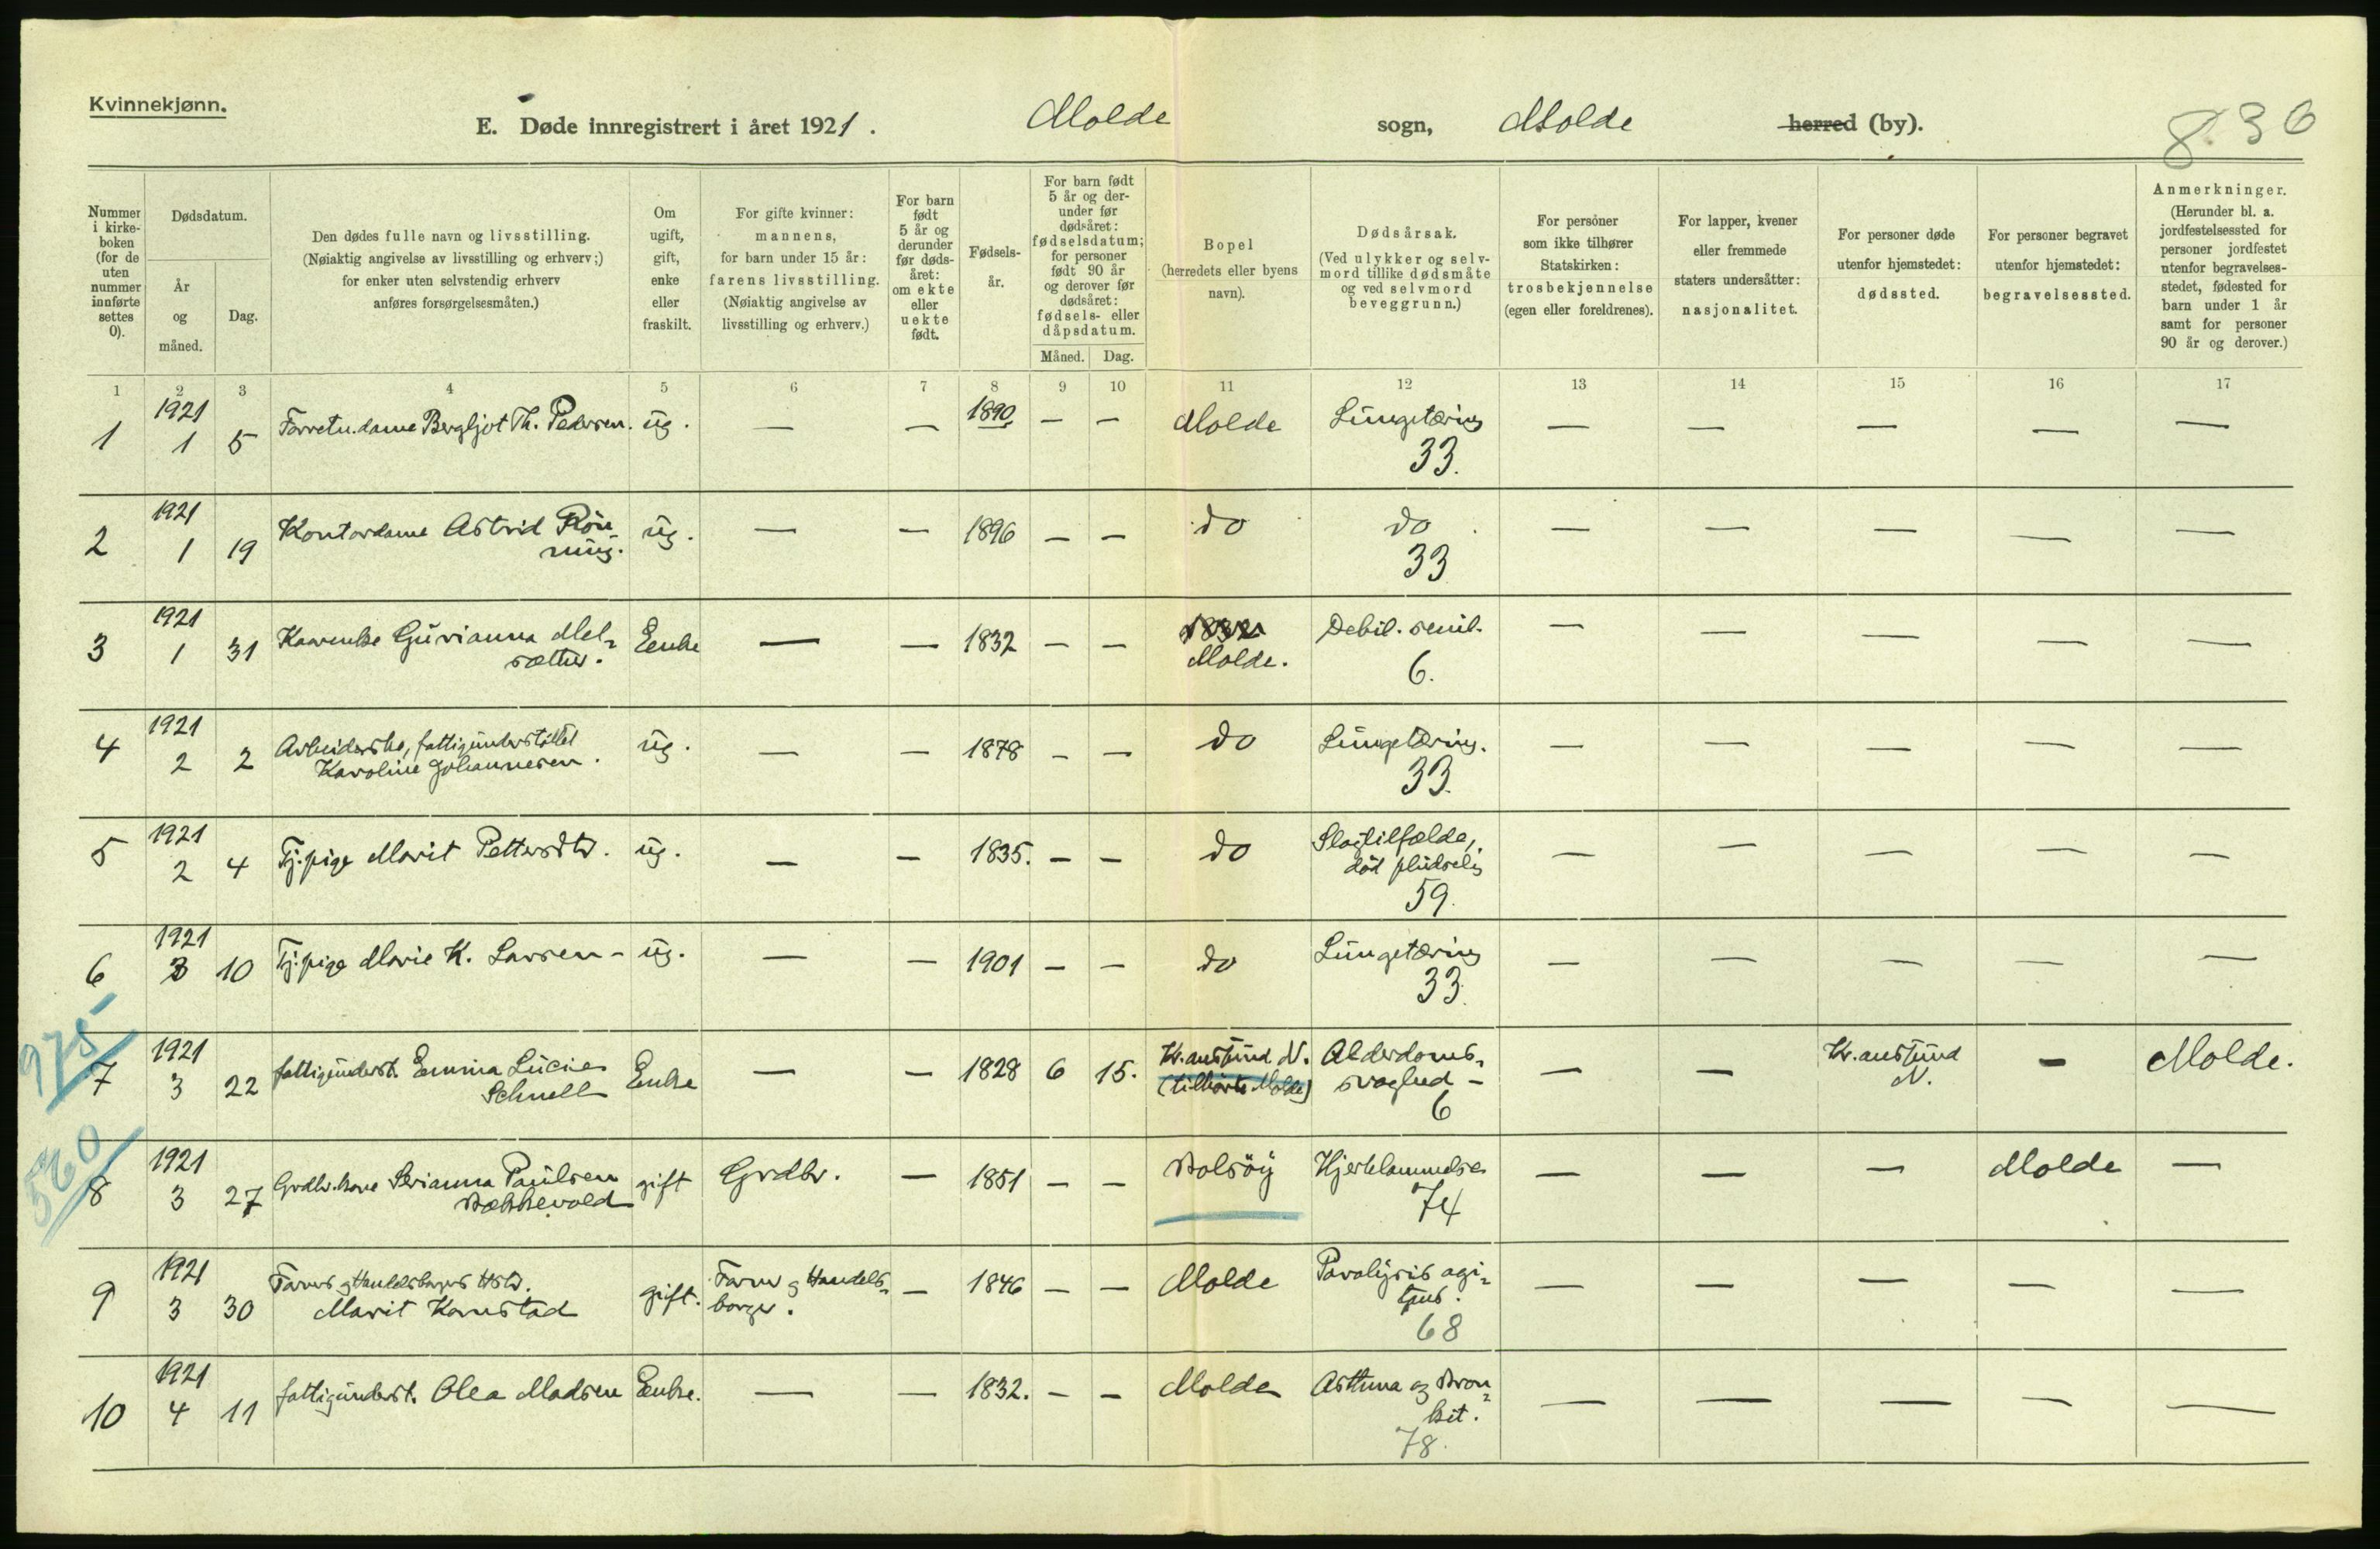 Kvinnekjønn.
E. Døde innregistrert i året 1921. Molde sogn, Molde herred (by). 836
Nummer i kirkeboken (for de uten nummer innførte settes 0).
Dødsdatum.
År og måned.
Dag.
Den dødes fulle navn og livsstilling.
(Nøiaktig angivelse av livsstilling og erhverv;)
for enker uten selvstendig erhverv
anføres forsørgelsesmåten.)
Om ugift, gift, enke eller fraskilt.
For gifte kvinner:
mannens,
for barn under 15 år:
farens livsstilling.
(Nøiaktig angivelse av
livsstilling og erhverv.)
For barn født 5 år og derunder før dødsåret: om ekte eller uekte født.
Fødselsår.
For barn født 5 år og derunder før dødsåret: fødselsdatum; for personer født 90 år og derover før dødsåret: fødsels- eller dåpsdatum.
Måned. Dag.
Bopel
(herredets eller byens
navn).
Dødsårsak.
(Ved ulykker og selv-
mord tillike dødsmåte
og ved selvmord
beveggrunn.)
For personer
som ikke tilhører
Statskirken:
trosbekjennelse
(egen eller foreldrenes).
For lapper, kvener
eller fremmede
staters undersåtter:
nasjonalitet.
For personer døde
utenfor hjemstedet:
dødssted.
For personer begravet
utenfor hjemstedet:
begravelsessted.
Anmerkninger.
(Herunder bl. a.
jordfestelsessted for
personer jordfestet
utenfor begravelses-
stedet, fødested for
barn under 1 år
samt for personer
90 år og derover.)
1 2 3 4 5 6 7 8 9 10 11 12 13 14 15 16 17
1 1921 1 5 Forretn.dame Bergljot Th. Pedersen. ug. — — 1890 — — Molde Lungetæring 33. — — — — —
2 1921 1 19 Kontordame Astrid Rönning. ug. — — 1896 — — do do 33 — — — — —
3 1921 1 31 Kaarenke Gurianna Mel=sætter. Enke — — 1832 — — 1832 Molde. Debil. senil. 6. — — — — —
4 1921 2 2 Arbeiderske, fattigunderstöttet Karoline Johannesen. ug. — — 1878 — — do Lungetæring. 33. — — — — —
5 1921 2 4 Tj.pige Marit Pettersdtr. ug. — — 1835. — — do Slagtilfælde, död pludselig 59. — — — — —
6 1921 3 10 Tj.pige Marie K. Larsen - ug. — — 1901 — — do Lungetæring 33. — — — — —
975-
7 1921 3 22 fattigunderst. Emma Lucie Schnell Enke — — 1828 6 15. Kr.ansund N. (tilhörte Molde) Alderdoms=svaghed - 6 — — Kr.ansund N. — Molde.
560
8 1921 3 27 Grdbr.kone Serianna Paulsen Bækkevold gift Grdbr. — 1851 — — Bolsöy Hjertelammelse 74 — — — Molde —
9 1921 3 30 Farver og Handelsborgers Hstr. Marit Kanestad gift. Farver og Handels=borger. — 1846 — — Molde Paralysis agi=tans. 68 — — — — —
10 1921 4 11 fattigunderst. Olea Madsen Enke. — — 1832. — — Molde Asthma og Bron=kit. 78. — — — — —